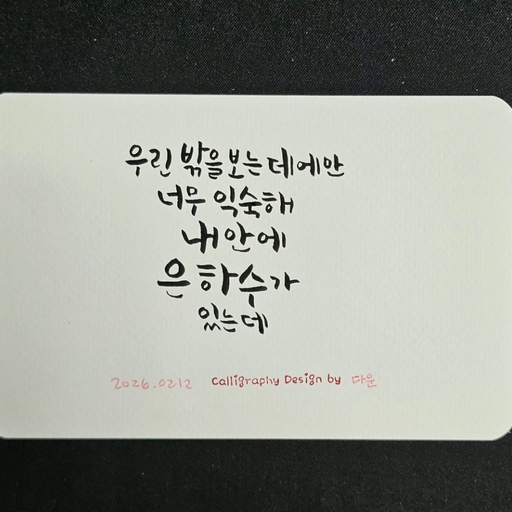 우린 밖을 보는 데에만
너무 익숙해
내 안에
은하수가
있는데
2026.0212 Calligraphy Design by 다운